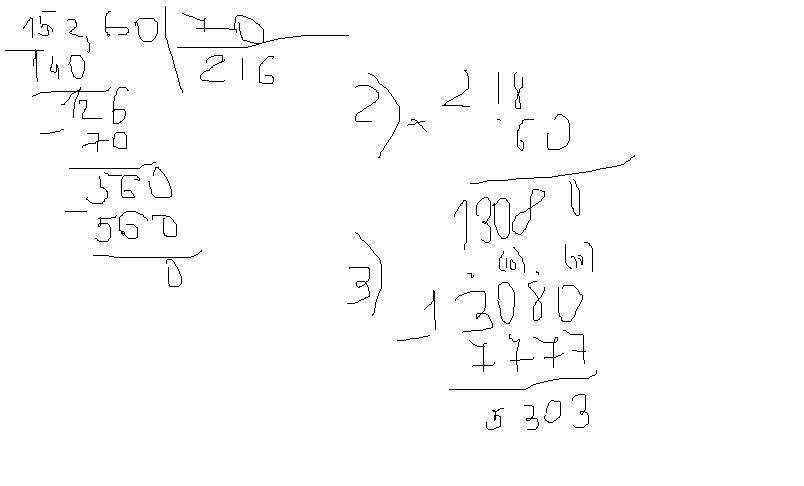 152,60 70
140 216
126
- 70
560
- 560
0
2) × 218
60
13080
(10) (10)
3) - 13080
7777
5303